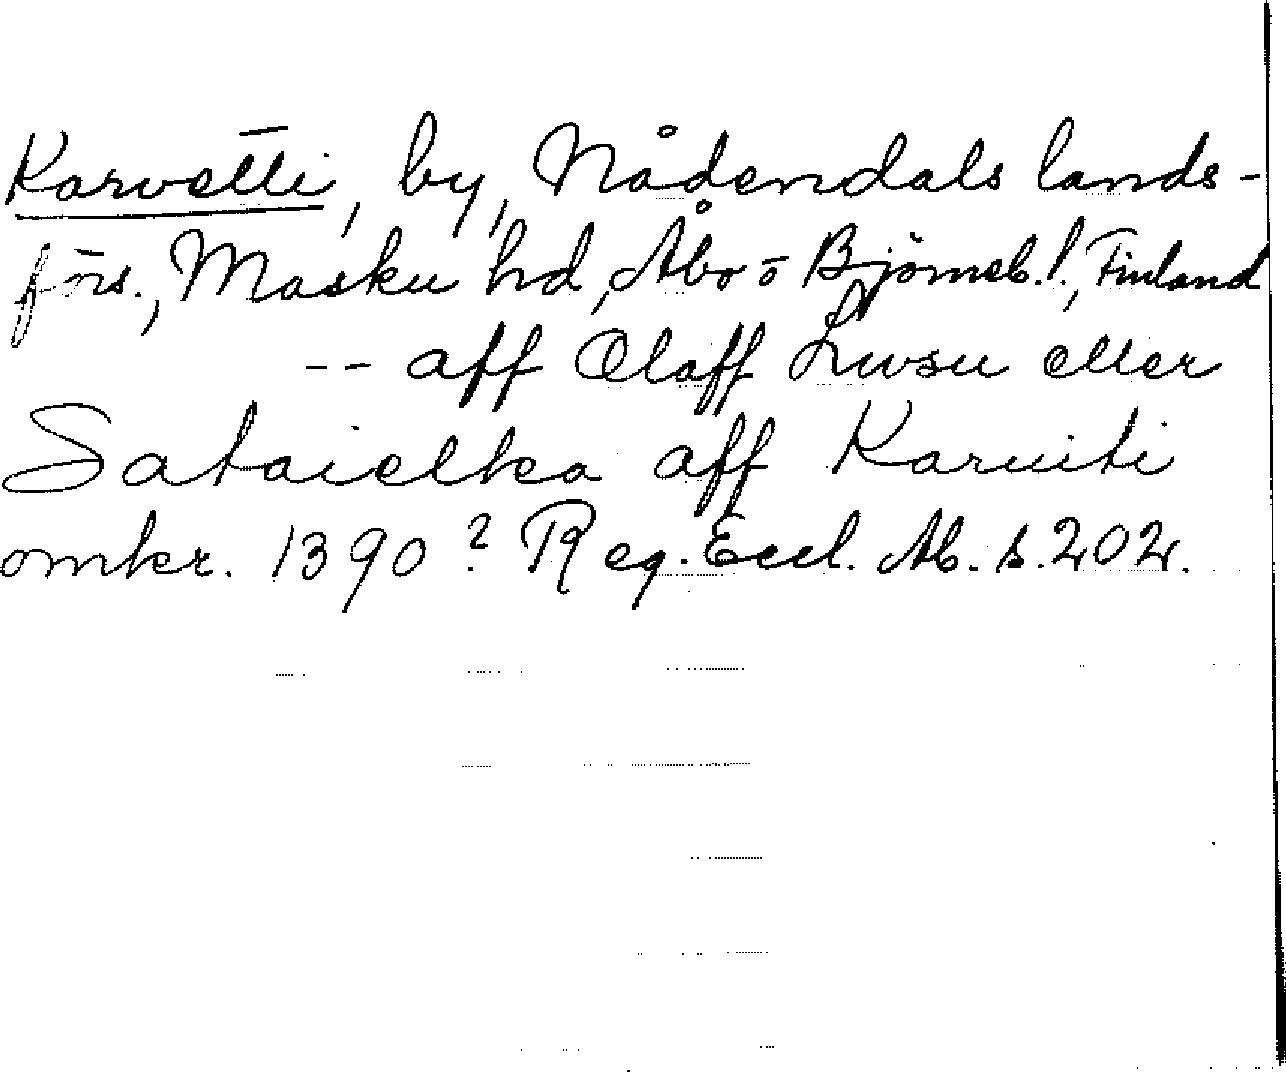 Karvetti, by, Nådendals lands-
förs., Masku hd, Åbo o Björneb. l., Finland
-- aff Olaff Lwsu eller
Sataielka aff Karuiti
omkr. 1390? Reg. Eccl. Ab. s. 202.